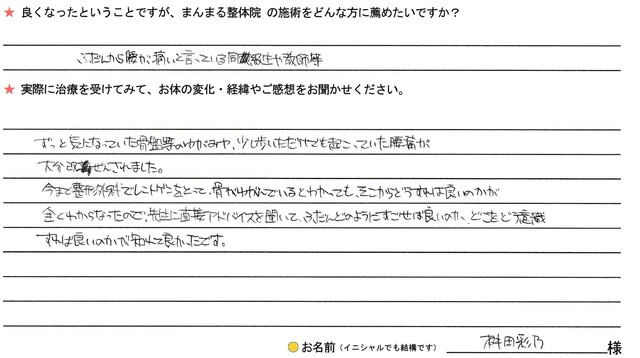 ★ 良くなったということですが、まんまる整体院 の施術をどんな方に薦めたいですか？
ふだんから腰が痛いと言っている同級生や教師等
★ 実際に治療を受けてみて、お体の変化・経緯やご感想をお聞かせください。
ずっと気になっていた骨盤等のゆがみや、少し歩いただけでも起こっていた腰痛が
大分改善ぜんされました。
今まで整形外科でレントゲンをとって、骨がゆがんでいるとわかっても、そこからどうすれば良いのかが
全くわからなったので、先生に直接アドバイスを聞いて、ふだんどのようにすごせば良いのか、どこをどう意識
すれば良いのかが知れて良かったです。
お名前（イニシャルでも結構です） 田彩乃 様